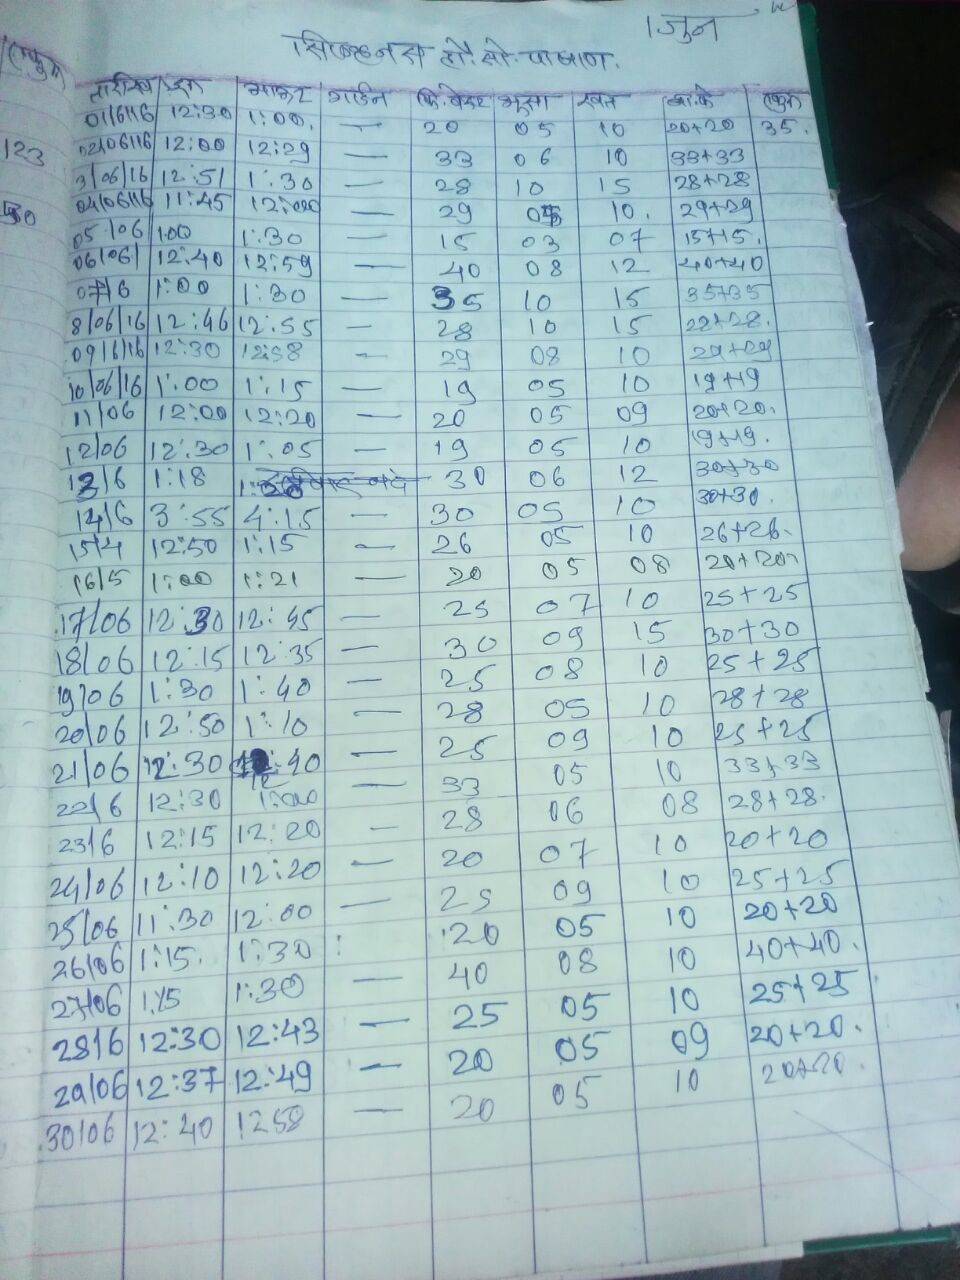 1 जुन
तारीख इन आऊट गार्डन
01/6/16 12:30 1:00. — 20 05 10 20+20 35.
02/06/16 12:00 12:29 — 33 06 10 33+33
3/06/16 12:51 1:30 — 28 10 15 28+28
04/06/16 11:45 12:00 — 29 05 10. 29+29
05/06 1:00 1:30 — 15 03 07 15+15.
06/06/ 12:40 12:59 — 40 08 12 40+40
07/6 1:00 1:30 — 35 10 15 35+35
8/06/16 12:46 12:55 — 28 10 15 28+28.
09/6/16 12:30 12:58 — 29 08 10 29+29
10/06/16 1:00 1:15 — 19 05 10 19+19
11/06 12:00 12:20 — 20 05 09 20+20.
12/06 12:30 1:05 — 19 05 10 19+19.
13/6 1:18 30 06 12 30+30
14/6 3:55 4:15 — 30 05 10 30+30.
15/4 12:50 1:15 — 26 05 10 26+26.
16/5 1:00 1:21 — 20 05 08 20+20
17/06 12:30 12:45 — 25 07 10 25+25
18/06 12:15 12:35 — 30 09 15 30+30
19/06 1:30 1:40 — 25 08 10 25+25
20/06 12:50 1:10 — 28 05 10 28+28
21/06 12:30 :40 — 25 09 10 25+25
22/6 12:30 1:00 33 05 10 33+33
23/6 12:15 12:20 — 28 06 08 28+28.
24/06 12:10 12:20 — 20 07 10 20+20
25/06 11:30 12:00 — 25 09 10 25+25
26/06 1:15. 1:30 20 05 10 20+20
27/06 1:15 1:30 — 40 08 10 40+40.
28/6 12:30 12:43 — 25 05 10 25+25
29/06 12:37 12:49 — 20 05 09 20+20.
30/06 12:40 12 58 — 20 05 10 20+20.
123